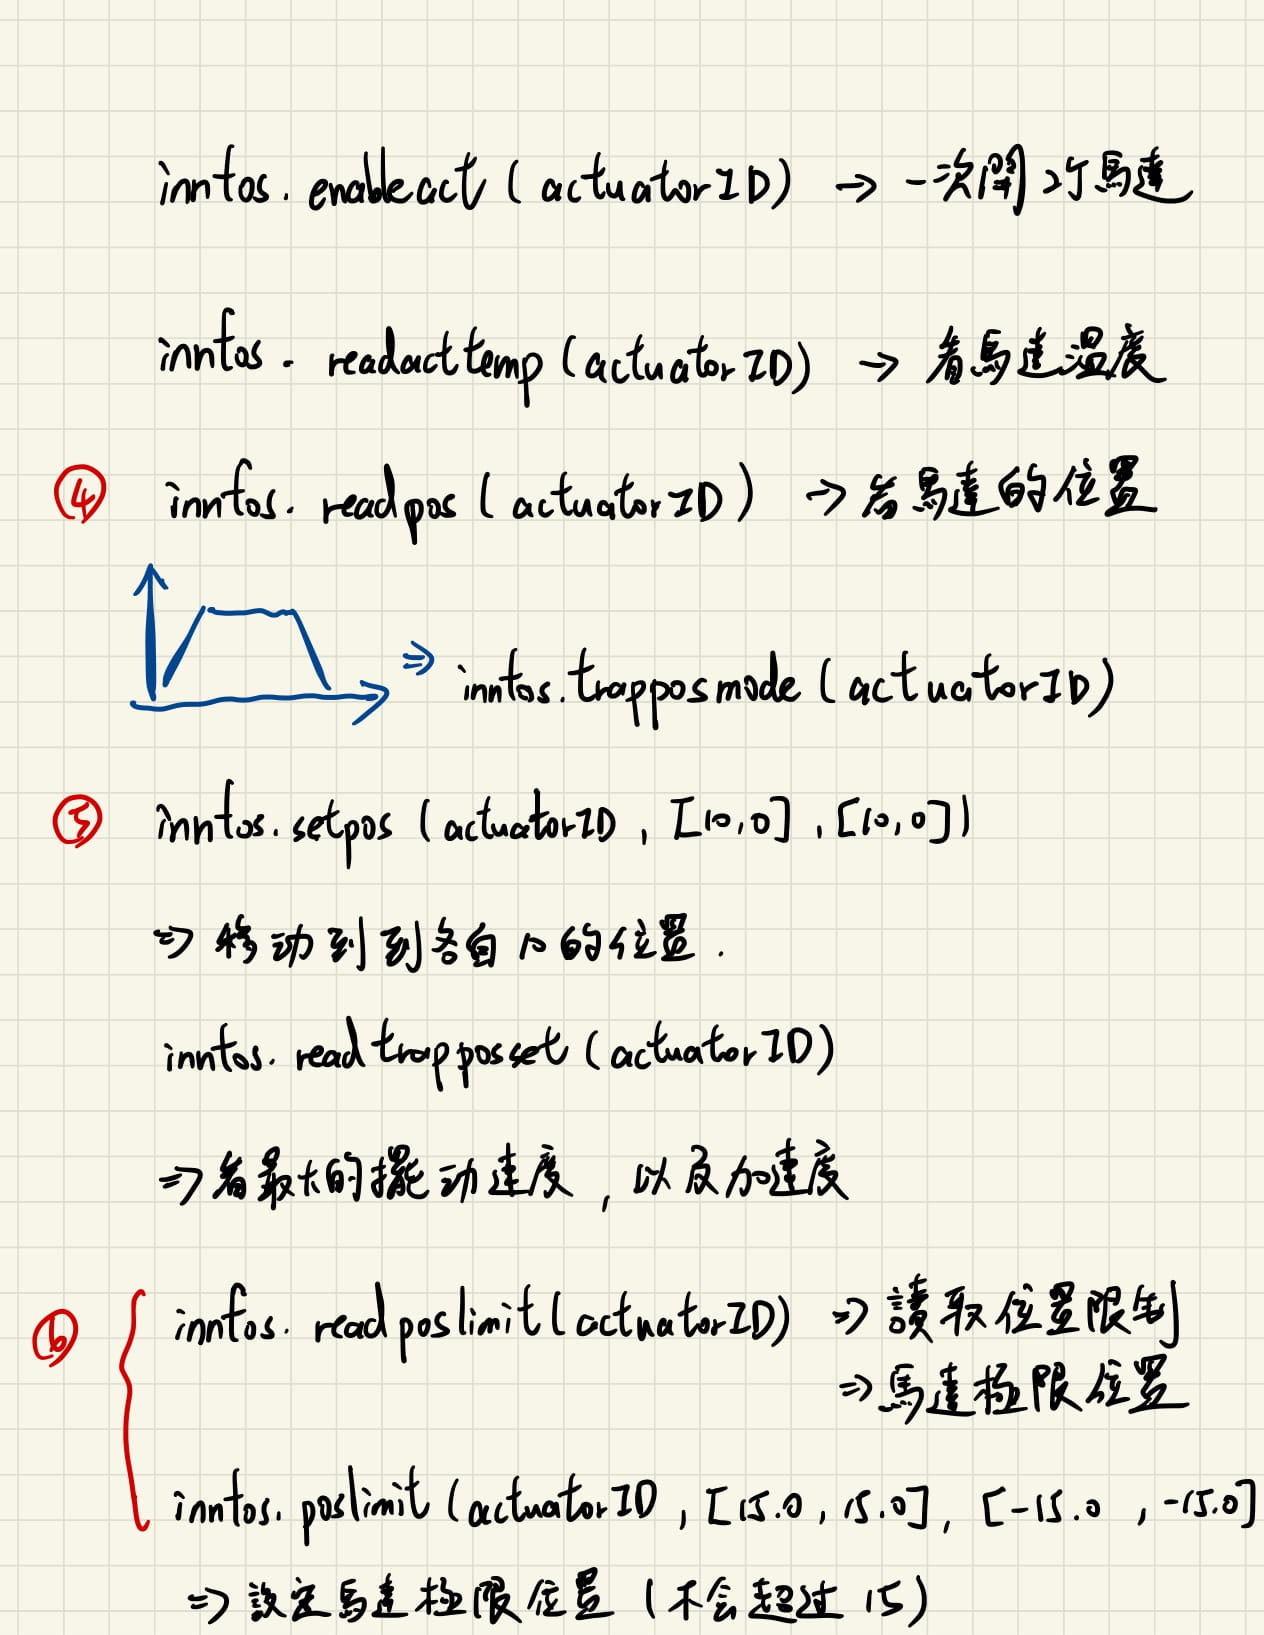 inntos.enableact(actuatorID) → 一次開2顆馬達
inntos.readacttemp(actuatorID) → 看馬達溫度
④ inntos.readpos(actuatorID) → 看馬達的位置
⇒ inntos.trapposmode(actuatorID)
⑤ inntos.setpos(actuatorID, [10,0],[10,0])
⇒ 移动到到各自10的位置.
inntos.readtrapposset(actuatorID)
⇒看最大的擺动速度, 以及加速度
⑥ inntos.readposlimit(actuatorID) ⇒ 讀取位置限制
⇒馬達極限位置
inntos.poslimit(actuatorID, [15.0, 15.0], [-15.0, -15.0]
⇒ 設定馬達極限位置 (不会超过 15)